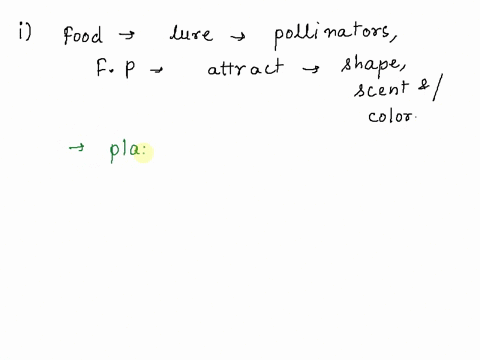 i) food → lure → pollinators,
F. p → attract → shape,
scent &/
color.
→ pla